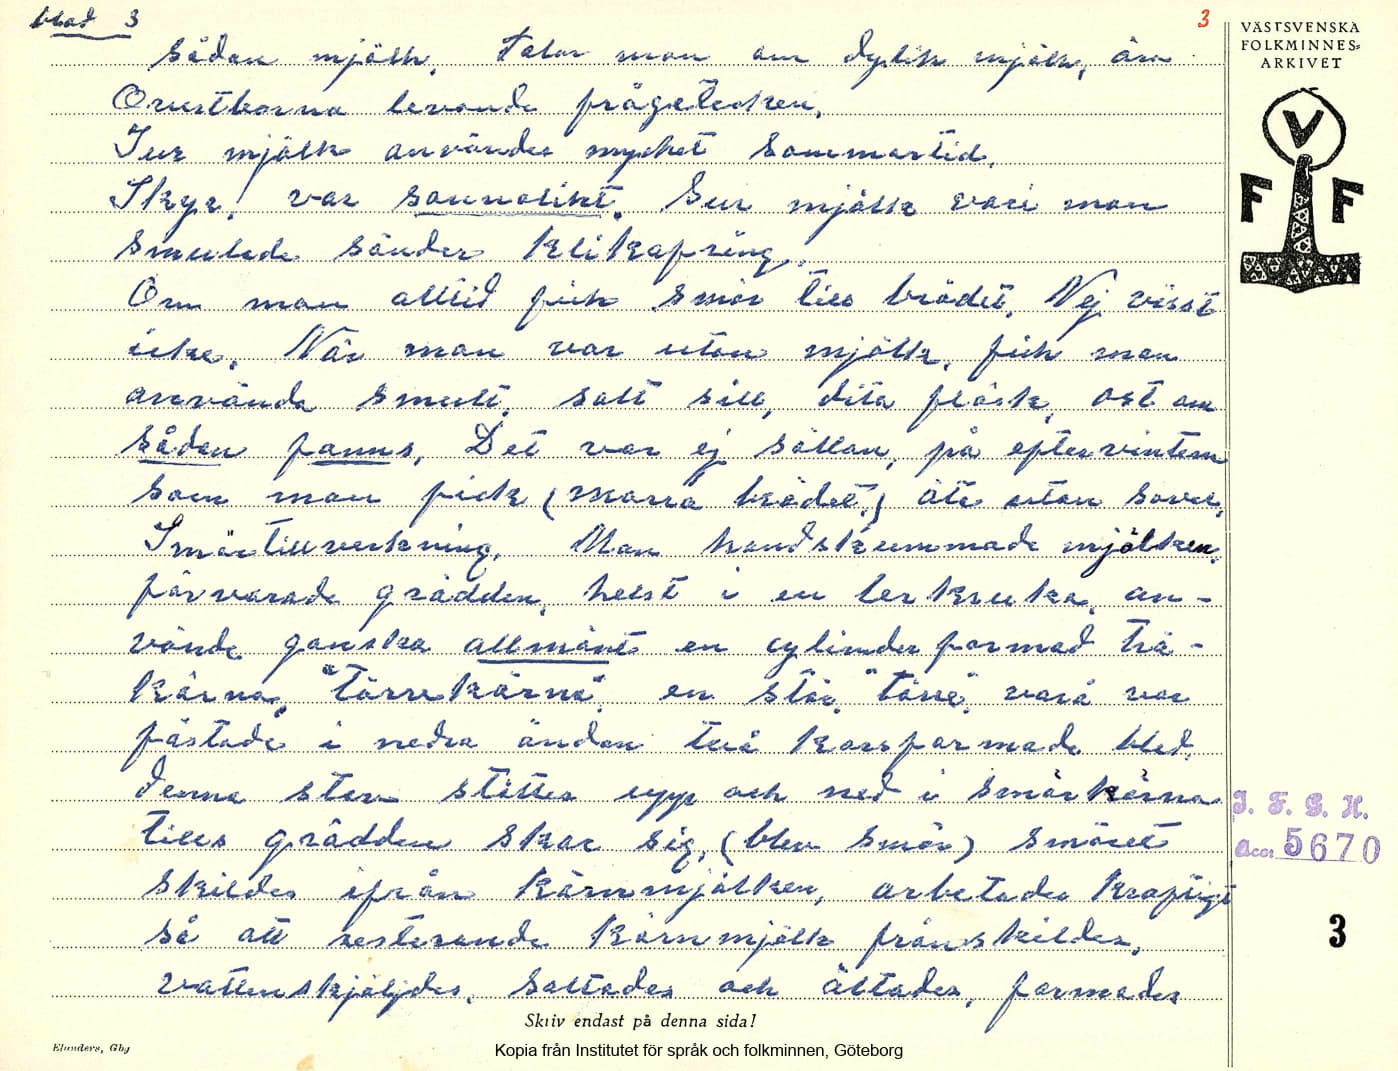 blad 3
3
VÄSTSVENSKA
FOLKMINNES-
ARKIVET
V
F F
sådan mjölk. Talar man om dylik mjölk, äro
Orustborna levande frågetecken.
Sur mjölk användes mycket sommartid.
Skyr! var sannolikt. Sur mjölk vari man
smulade sönder klikafring.
Om man alltid fick smör till brödet. Nej visst
icke. När man var utan mjölk, fick man
använda smult, salt sill, dito fläsk, ost om
sådan fanns. Det var ej sällan, på eftervintern
som man fick (morra brödet.) äta utan sovel.
Smörtillverkning. Man handskummade mjölken,
förvarade grädden, helst i en lerkruka, an-
vände ganska allmänt en cylinderformad trä-
kärna, "törrekärna", en stör, "töre", vara var
fästade i nedra ändan två korsformade bled,
denna stav stöttes upp och ned i smörkärna
tills grädden skar sig, (blev smör) smöret
skildes ifrån kärnmjölken, arbetades kraftigt
så att resterande kärnmjölk frånskildes,
vattenskjöljdes, saltades och ältades, formades
J. F. G. H.
Acc: 5670
3
Skriv endast på denna sida!
Elanders, Gbg
Kopia från Institutet för språk och folkminnen, Göteborg